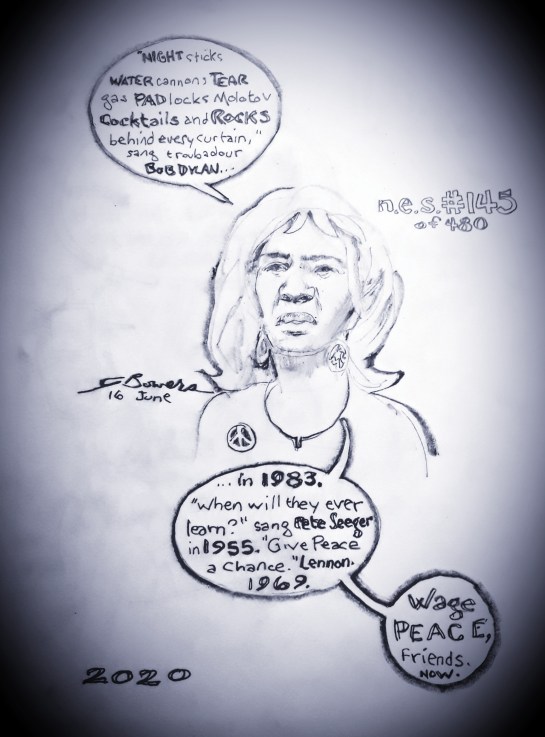 "NIGHT sticks
WATER cannons TEAR
gas PADlocks Molotov
Cocktails and ROCKS
behind every curtain,"
sang troubadour
BOB DYLAN...
n.e.s. #145
of 480
C Bowers
16 June
... in 1983.
"When will they ever
learn?" sang Pete Seeger
in 1955. "Give Peace
a Chance." Lennon.
1969.
Wage
PEACE,
Friends.
NOW.
2020